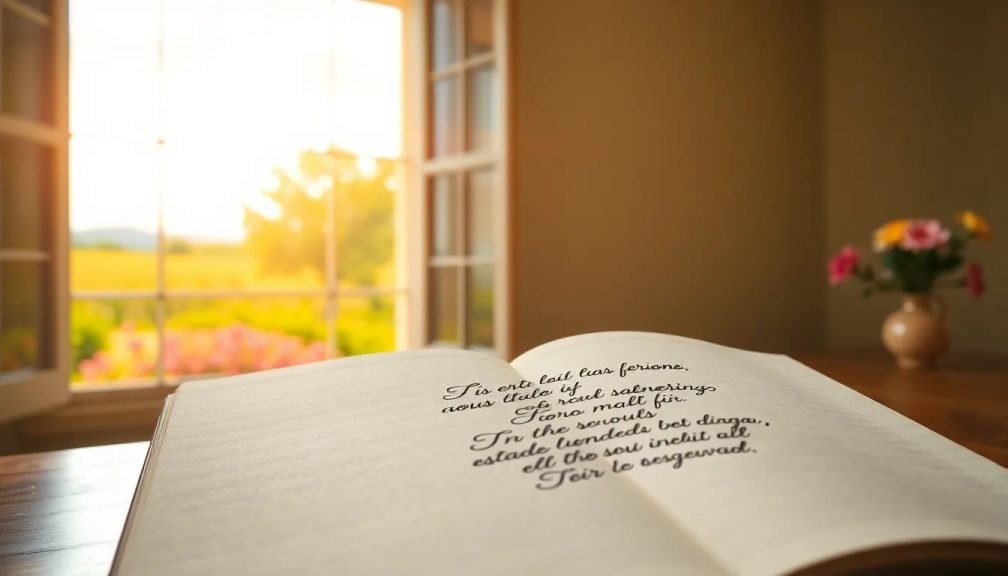 Tis ente loil luas ferione,
aous thule iy
oe reul salnesings
Foro malt fiir.
In the serouls
estade lundeds bet dinga..
ell the sou inebit all
Teir le sesgewad.